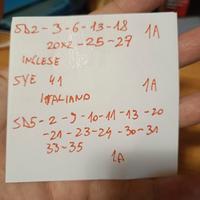 SD2 - 3 - 6 - 13 - 18 1A
20x2 - 25 - 27
INGLESE
SYE 41 1A
ITALIANO
SD5 - 2 - 9 - 10 - 11 - 13 - 20
- 21 - 23 - 24 - 30 - 31
33 - 35 1A